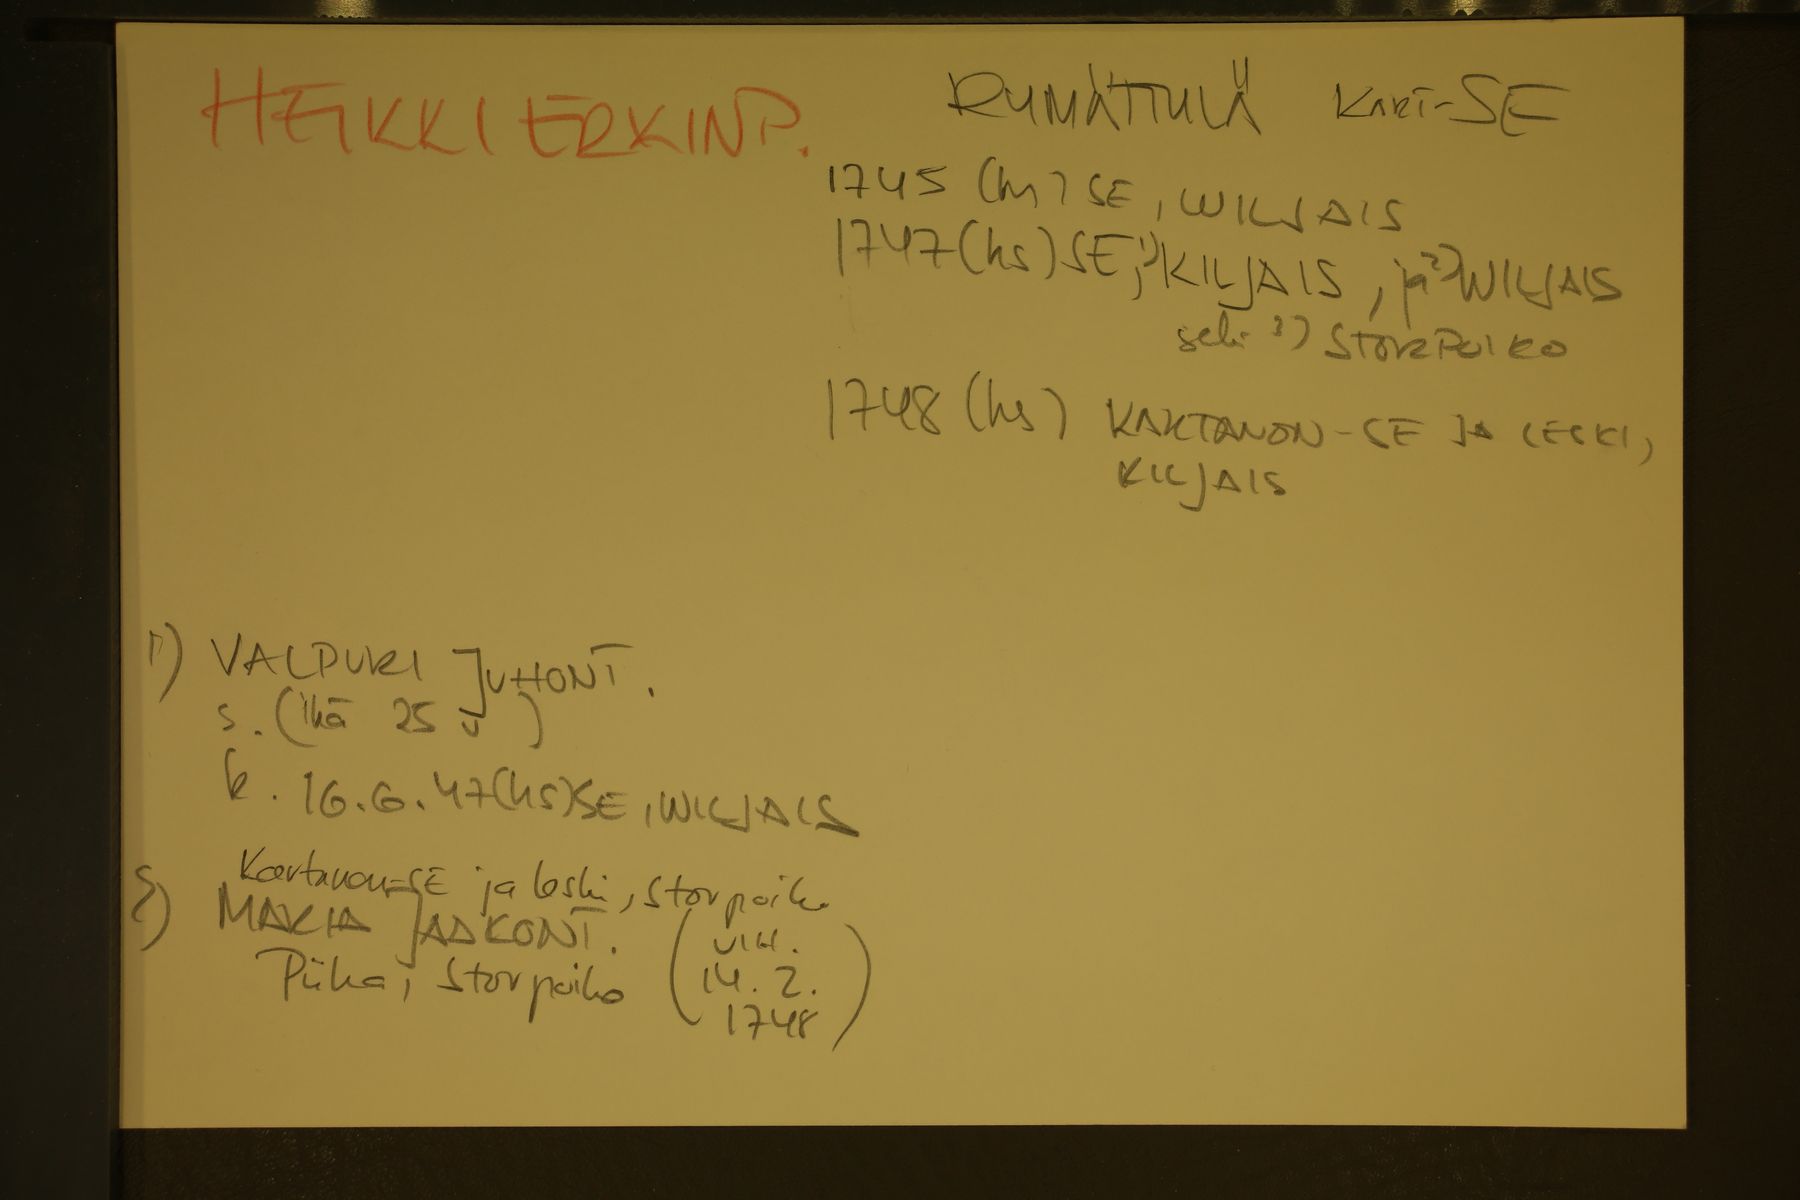 HEIKKI ERKINP.
RYMÄTTYLÄ KART-SE
1745 (hs) SE, WILJAIS
1747 (hs) SE, 1) KILJAIS, ja 2) WILJAIS
sek. 3) STORPOIKO
1748 (hs) KARTANON-SE JA LESKI,
KILJAIS
1) VALPURI JUHONT.
s. (ikä 25 v)
k. 16.6.47 (hs) SE, WILJAIS
Kartanon-SE ja leski, Storpoiko
2) MARIA JAAKONT.
Piika, Storpoiko
(VIH.
14.2.
1748)